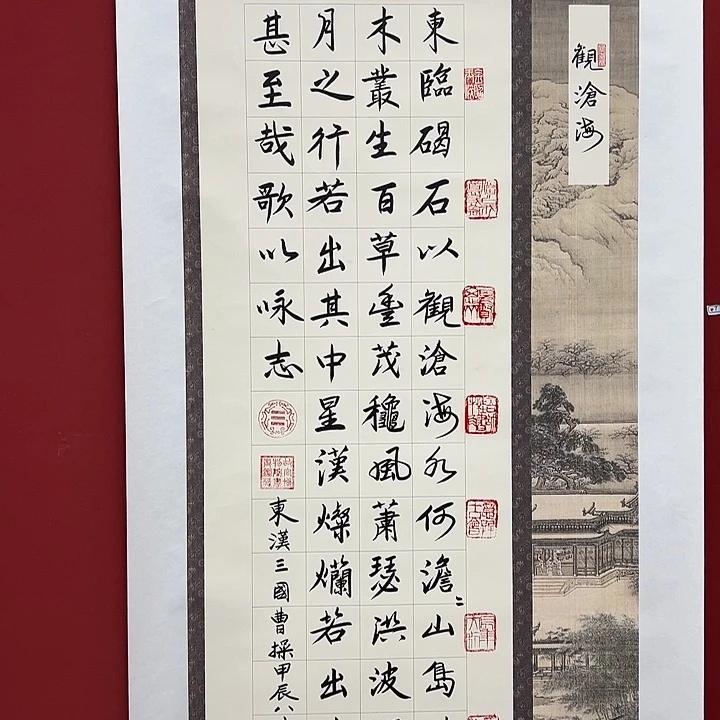 觀滄海
東臨碣石以觀滄海水何澹〻山島
木叢生百草豊茂穐風蕭瑟洪波
月之行若出其中星漢燦爛若出
甚至哉歌以咏志
東漢三國曹操甲辰八